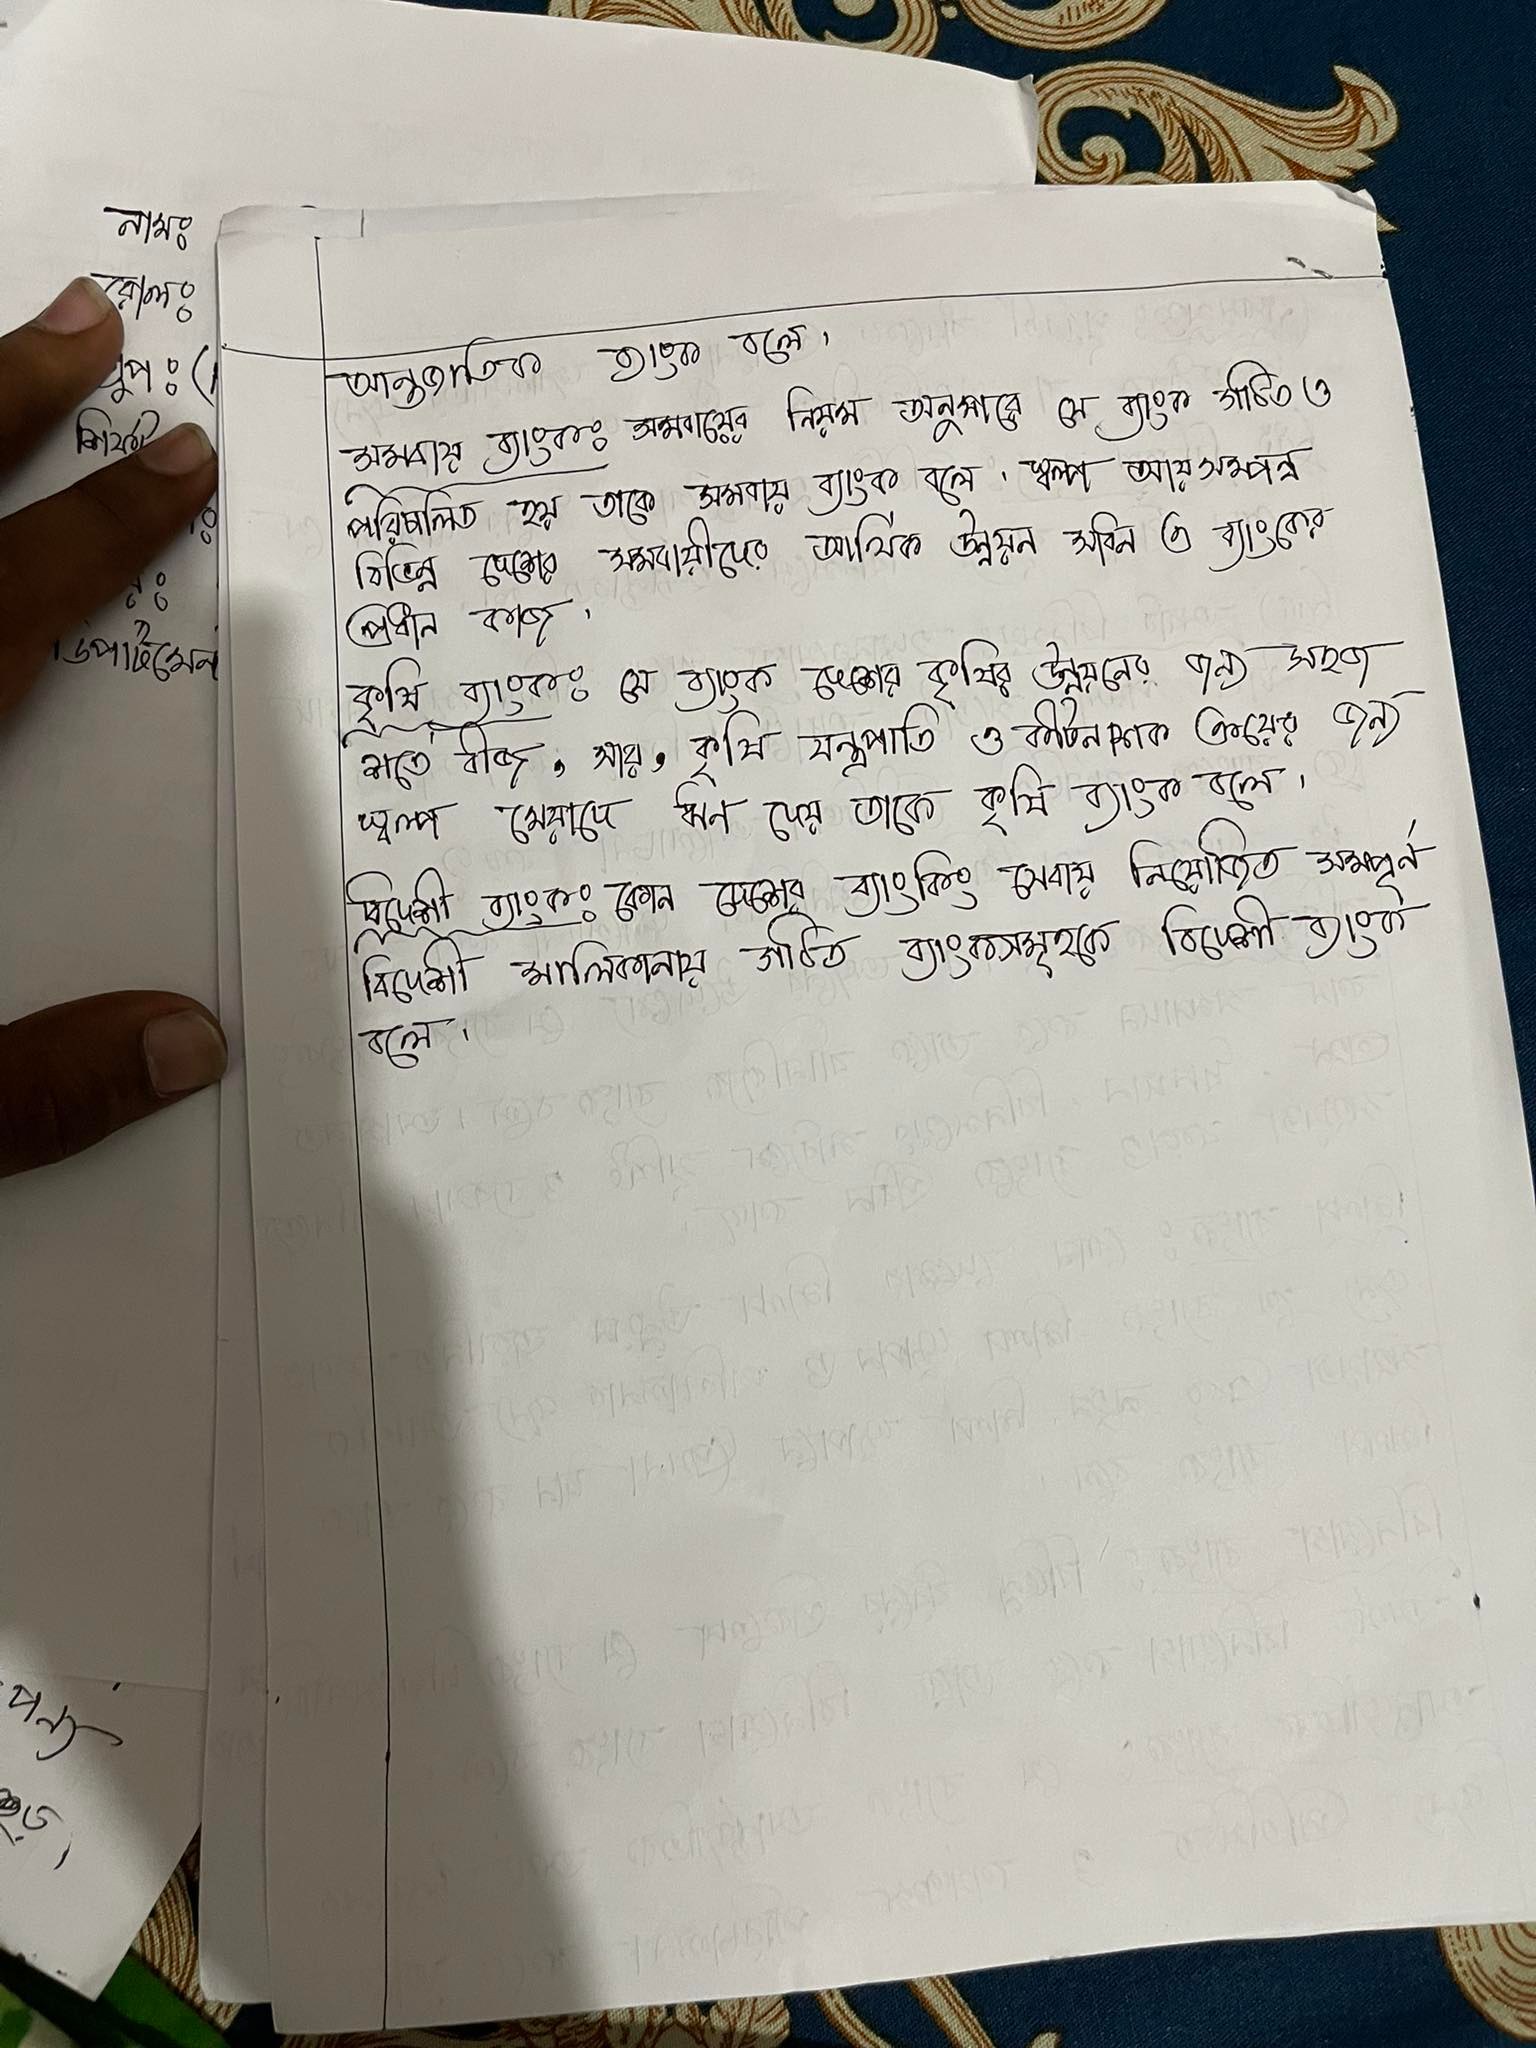 নামঃ
রোলঃ
গ্রুপঃ (
ডিপার্টমেন
আন্তজাতিক ব্যাংক বলে।
সমবায় ব্যাংকঃ সমবায়ের নিয়ম অনুসারে যে ব্যাংক গঠিত ও
পরিচালিত হয় তাকে সমবায় ব্যাংক বলে। স্বল্প আয়সম্পন্ন
বিভিন্ন দেশের সমবায়ীদের আর্থিক উন্নয়ন সাধন এ ব্যাংকের
প্রধান কাজ।
কৃষি ব্যাংকঃ যে ব্যাংক দেশের কৃষির উন্নয়নের জন্য সহজ
শর্তে বীজ, সার, কৃষি যন্ত্রপাতি ও কীটনাশক ক্রয়ের জন্য
স্বল্প মেয়াদে ঋন দেয় তাকে কৃষি ব্যাংক বলে।
বিদেশী ব্যাংকঃ কোন দেশের ব্যাংকিং সেবায় নিয়োজিত সম্পূর্ন
বিদেশী মালিকানায় গঠিত ব্যাংকসমূহকে বিদেশী ব্যাংক
বলে।
পন্য